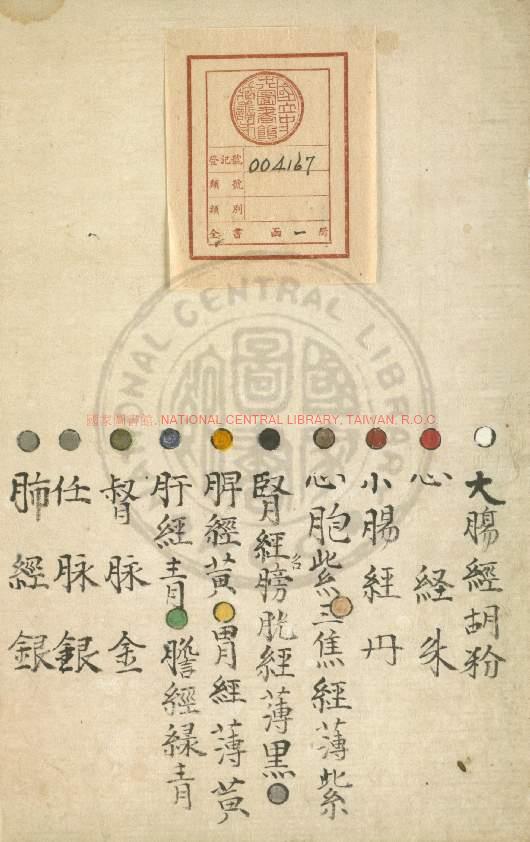 登記號 004167
類號
類別
全書 函一局
國家圖書館, NATIONAL CENTRAL LIBRARY, TAIWAN, R.O.C
NATIONAL CENTRAL LIBRARY
大膓經胡粉
心経朱
小膓經丹
心胞紫三焦經薄紫
腎經膀胱經薄黒
脾經黃胃經薄黃
肝經青膽經緑青
督脉金
任脉銀
肺經銀